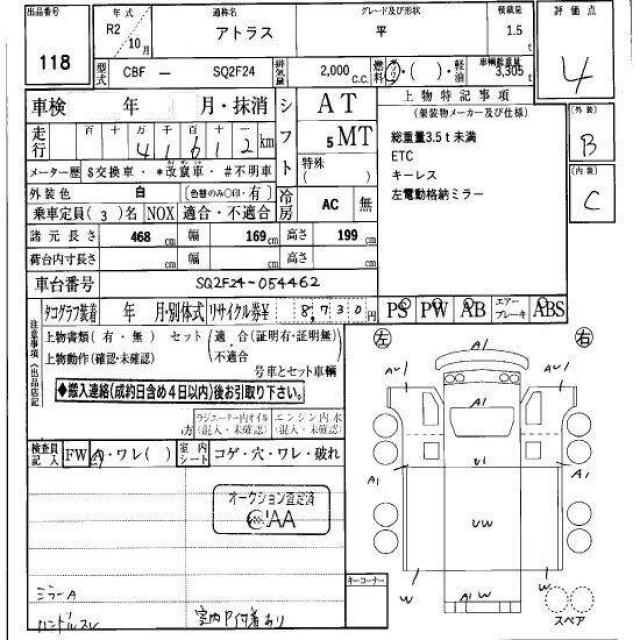 出品番号 118
年式 R2 10月
通称名 アトラス
グレード及び形状 平
積載量 1.5 t
評価点 4
型式 CBF － SQ2F24
排気量 2,000 C.C.
燃料 ガソリン・( )・軽油
車輌総重量 3,305 t
車検 年 月・抹消
シフト AT 5MT
上物特記事項
(架装物メーカー及び仕様)
総重量3.5t未満
ETC
キーレス
左電動格納ミラー
[外装] B
[内装] C
走行 百 十 万 千 百 十 一 4 1 6 1 2 km
特殊 ( )
メーター歴 $交換車・*改竄車・#不明車
外装色 白 (色替のみ○印・有)
冷房 AC 無
乗車定員(3)名 NOX 適合・不適合
諸元長さ 468 cm 幅 169 cm 高さ 199 cm
荷台内寸長さ cm 幅 cm 高さ cm
車台番号 SQ2F24-054462
タコグラフ装着 年 月・別体式 リサイクル券¥ 8,730円
PS PW AB エアーブレーキ ABS
注意事項(出品店記
上物書類(有・無) セット(適 合(証明有・証明無)
上物動作(確認・未確認) 不適合
号車とセット車輌
◆搬入連絡(成約日含め4日以内)後お引取り下さい。
ラジエーター内オイル エンジン内水
方 (混入・未確認) (混入・未確認)
検査員記入 FW A・ワレ( ) 室内シート コゲ・穴・ワレ・破れ
オークション査定済
CAA
キーコーナー
ミラーA
ハンドルスレ
室内P付着あり
左 右
A1
AU1 A1 AU1
U1
A1 A1
UW
W A1 W W
スペア